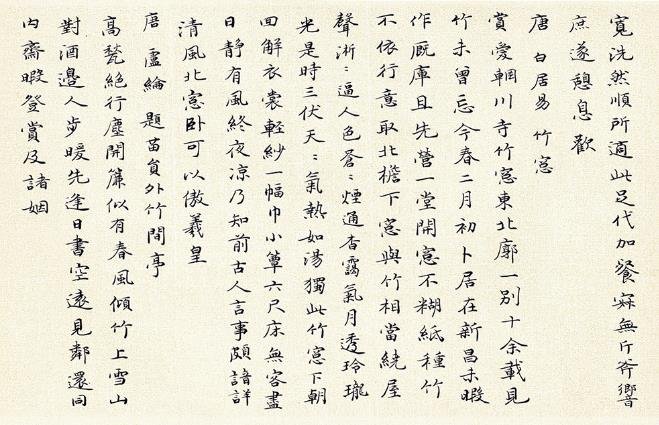 寬洗然順所適此足代加餐寂無斤斧響
庶遂憩息歡
唐 白居易 竹窓
賞愛輞川寺竹窓東北廓一別十余載見
竹未曾忘今春二月初卜居在新昌未暇
作厩庫且先營一堂開窓不糊紙種竹
不依行意取北檐下窓與竹相當繞屋
聲淅：逼人色蒼：煙通杳靄氣月透玲瓏
光是時三伏天：氣熱如湯獨此竹窓下朝
回解衣裳輕紗一幅巾小簟六尺床無客盡
日靜有風終夜凉乃知前古人言事頗諳詳
清風北窓卧可以傲羲皇
唐 盧綸 題苗員外竹間亭
高甃絶行塵開簾似有春風傾竹上雪山
對酒邊人步暖先逢日書空遠見鄰還同
内齋暇登賞及諸姻